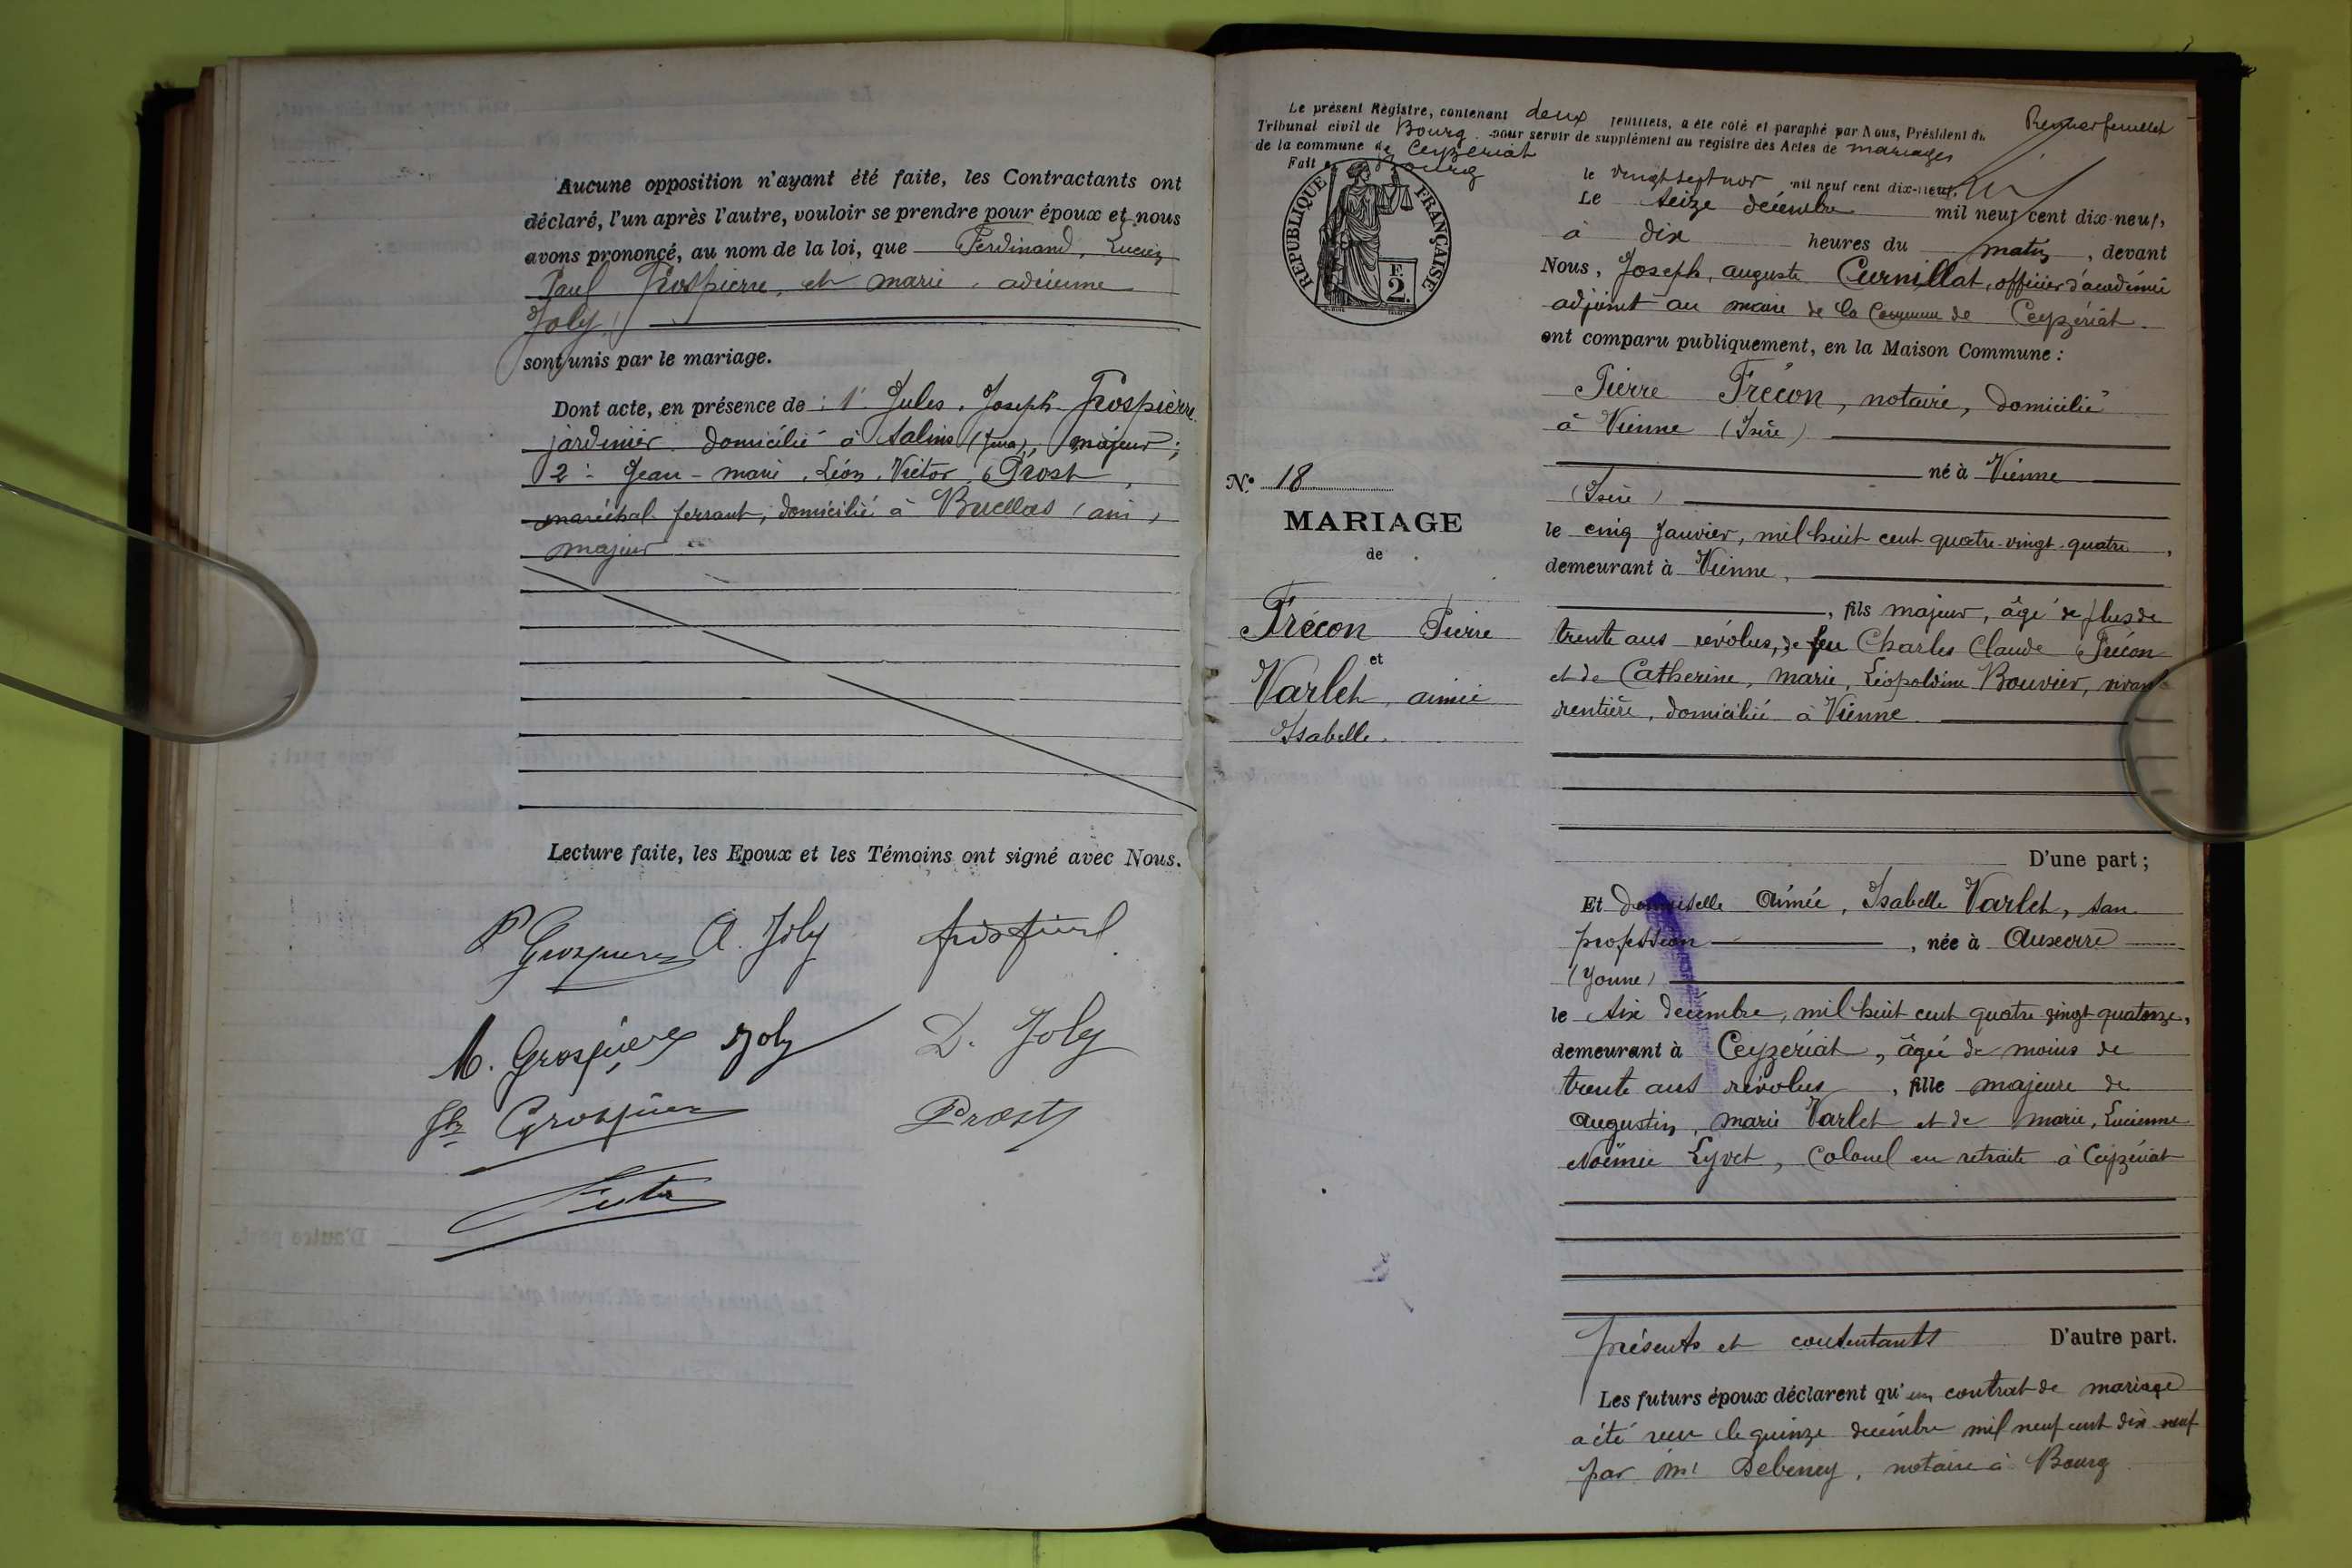 Aucune opposition n'ayant été faite, les Contractants ont
déclaré, l'un après l'autre, vouloir se prendre pour époux et nous
avons prononcé, au nom de la loi, que Ferdinand, Lucien
Paul Grospierre, et marie, adrienne
Joly,
sont unis par le mariage.
Dont acte, en présence de : 1° Jules, Joseph Grospierre
jardinier domicilié à Salins (Jura), majeur;
2° Jean-marie, Léon, Victor, Prost,
maréchal ferrant, domicilié à Buellas (ain)
majeur
Lecture faite, les Epoux et les Témoins ont signé avec Nous.
P Grospierre A. Joly
M. Grospierre Joly D. Joly
Grospierre Prost
Le présent Régistre, contenant deux feuillets, a été coté et paraphé par Nous, Président du
Premier feuillet
Tribunal civil de Bourg pour servir de supplément au registre des Actes de mariages
de la commune de Ceyzériat
Fait à Bourg
le vingt sept nov mil neuf cent dix-neuf.
REPUBLIQUE FRANÇAISE
F.
2.
Le seize décembre mil neuf cent dix-neuf,
à dix heures du matin, devant
Nous, Joseph, auguste Curnillat, officier d'académie
adjoint au maire de la Commune de Ceyzériat
ont comparu publiquement, en la Maison Commune :
Pierre Frécon, notaire, domicilié
à Vienne (Isère)
né à Vienne
(Isère)
le cinq Janvier, mil huit cent quatre-vingt-quatre,
demeurant à Vienne,
, fils majeur, âgé de plus de
trente ans révolus, de feu Charles Claude Frécon
et de Catherine, marie, Léopoldine Bouvier,
rentière, domiciliée à Vienne.
D'une part ;
N° 18
MARIAGE
de
Frécon Pierre
et
Varlet, aimée
Isabelle.
Et demoiselle Aimée, Isabelle Varlet, san
profession, née à Auxerre
(Yonne)
le six décembre, mil huit cent quatre vingt quatorze,
demeurant à Ceyzériat, âgée de moins de
trente ans révolus, fille majeure de
Augustin, marie Varlet et de marie, Lucienne
Noëmie Lyvet, Colonel en retraite à Ceyzériat
présents et consentants D'autre part.
Les futurs époux déclarent qu'un contrat de mariage
a été reçu le quinze décembre mil neuf cent dix neuf
par Me Debeney, notaire à Bourg